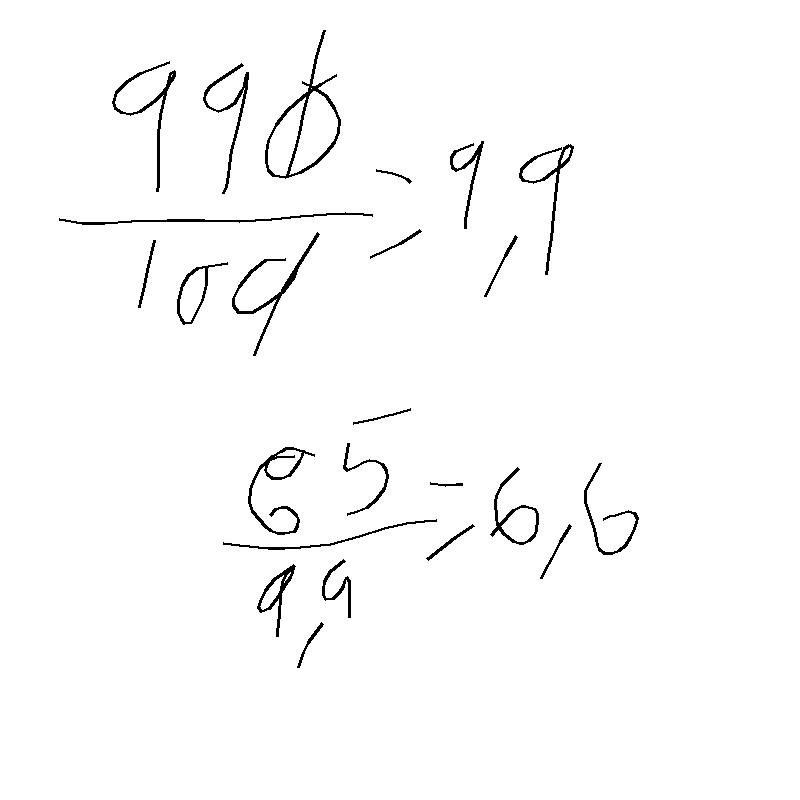 990/100 = 9,9
65/9,9 = 6,6